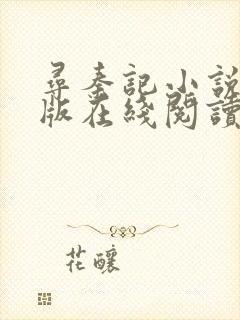 尋秦記小說
版在綫閱讀
花釀